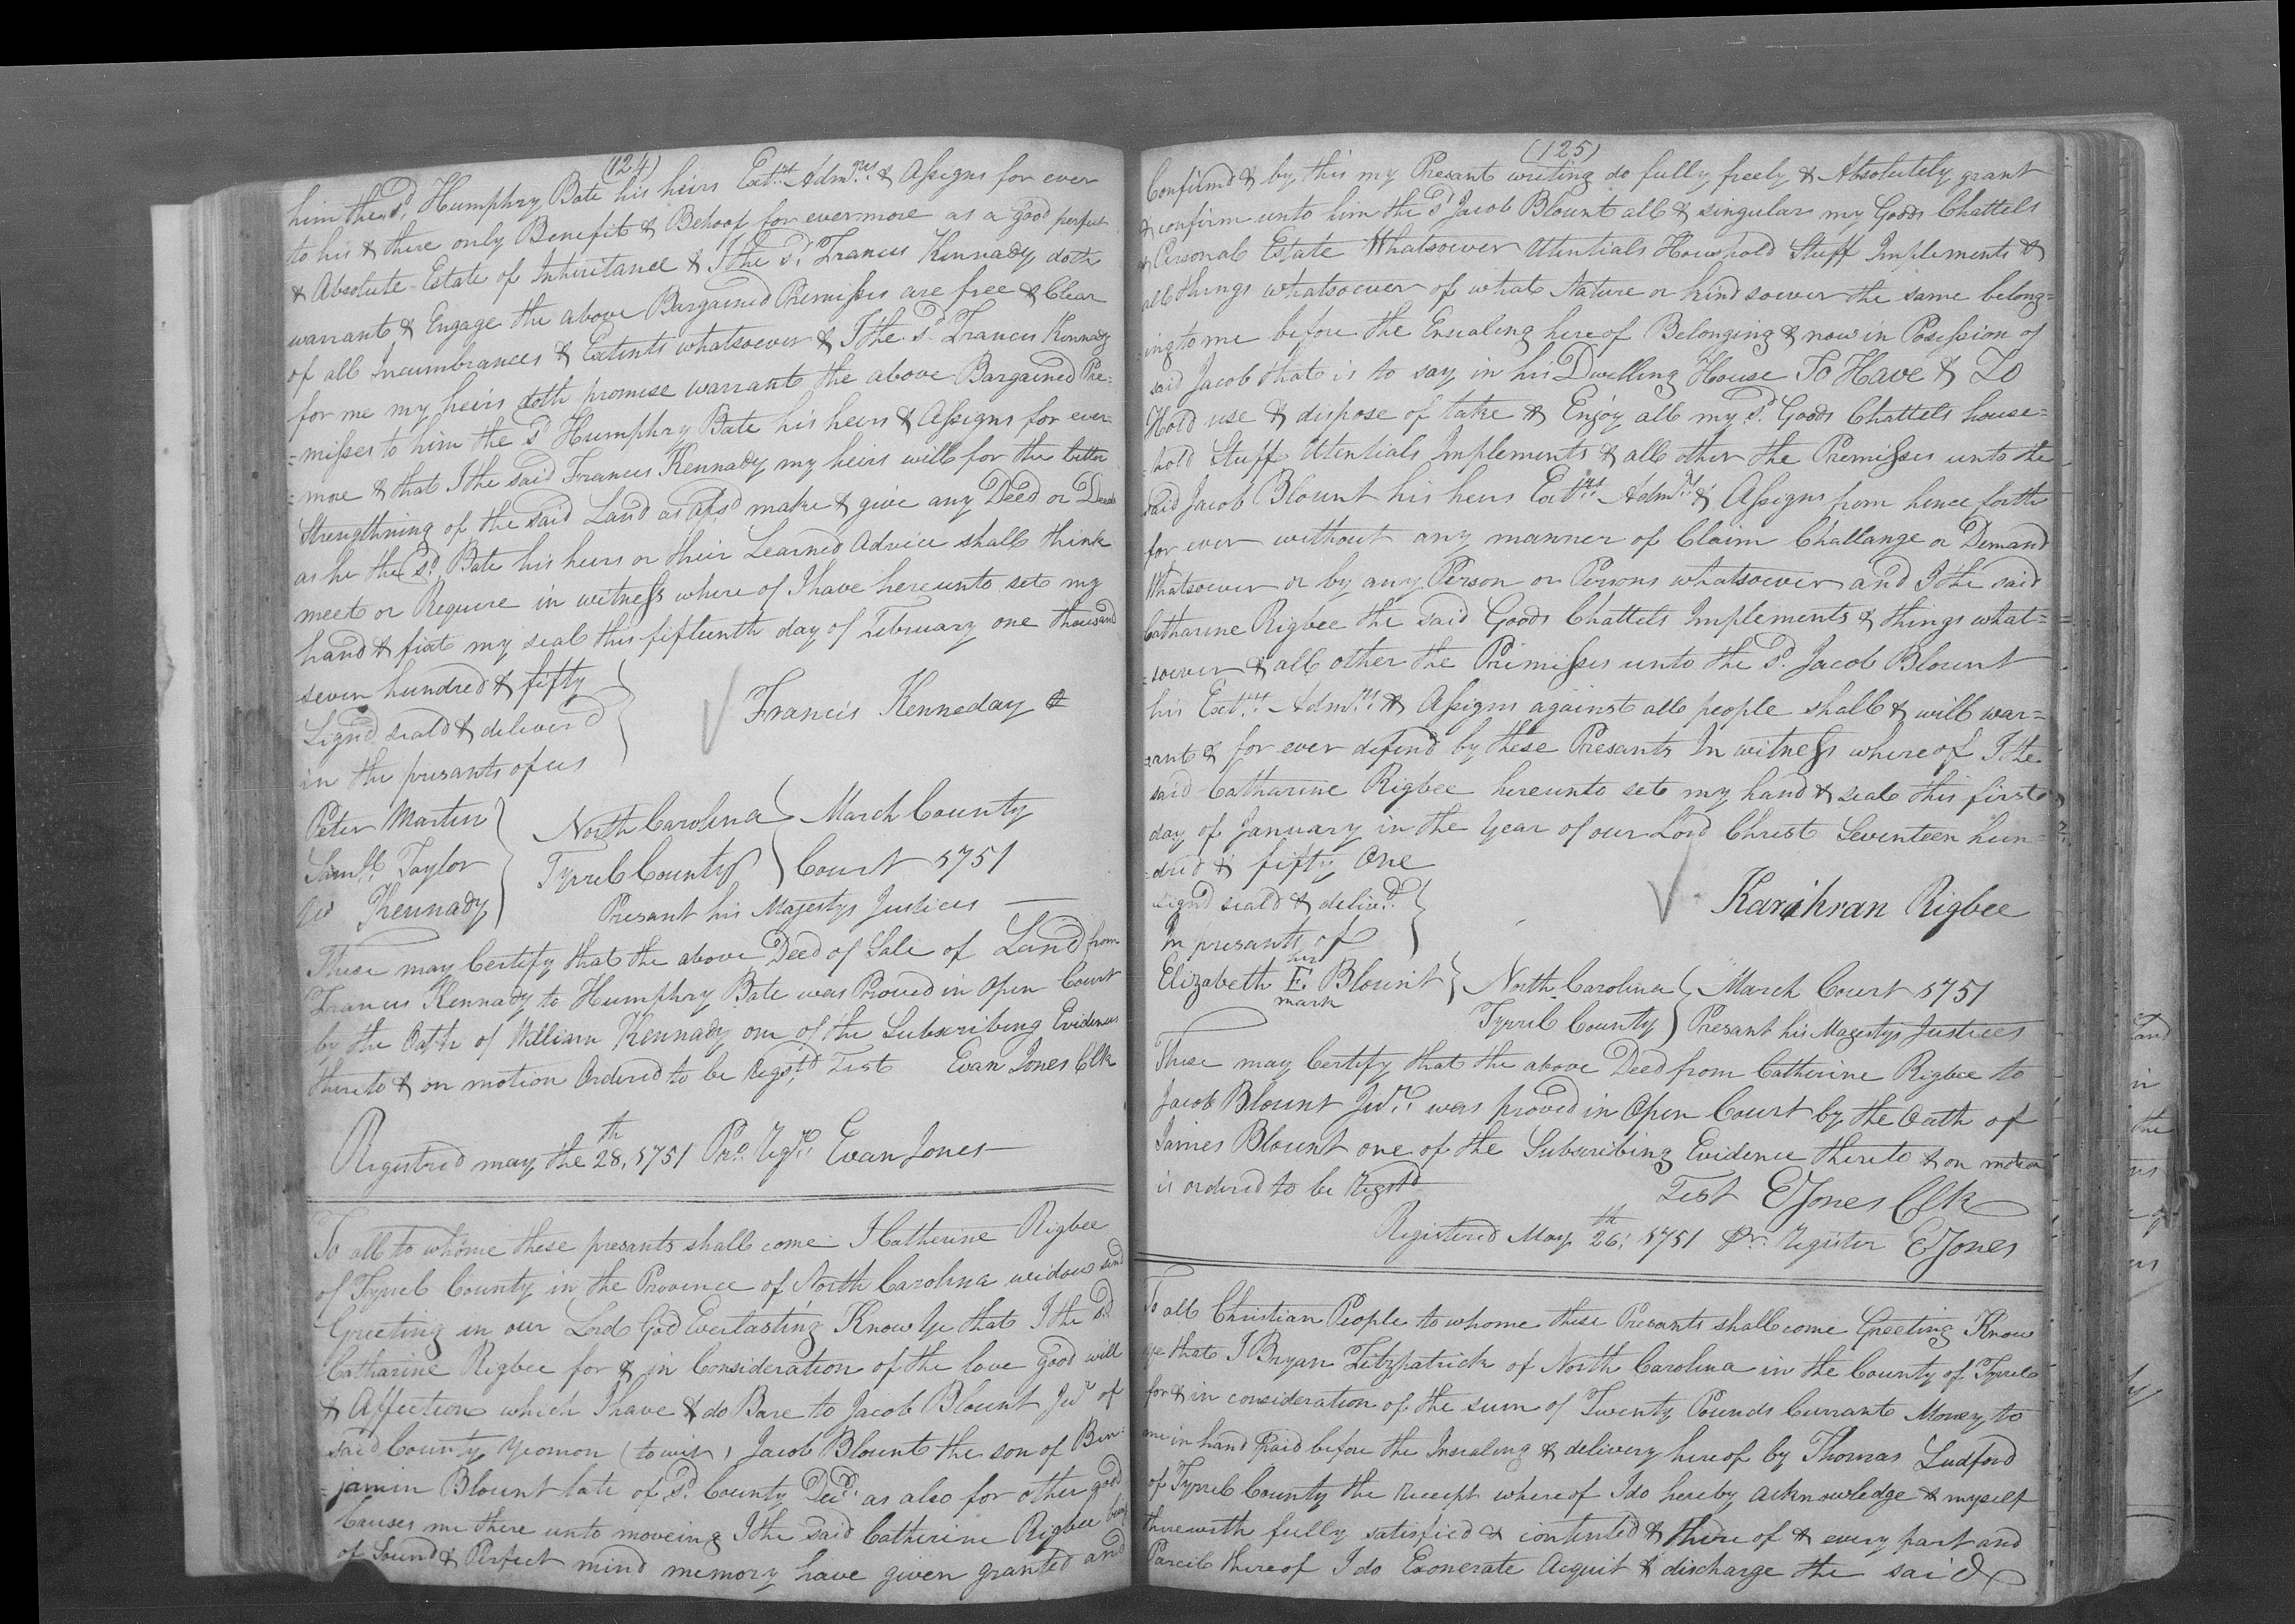 (124)
him the sd. Humphry Bate his heirs Extrs. Admrs. & Assigns for ever
to his & there only Benefit & Behoof for evermore as a good perfect
& Absolute Estate of Inheritance & I the sd. Francis Kennady doth
warrant & Engage the above Bargained Premisses are free & Clear
of all Incumbrances & Extents whatsoever & I the sd. Francis Kennady
for me my heirs doth promise warrant the above Bargained Pre=
=misses to him the sd. Humphry Bate his heirs & Assigns for ever
=more & that I the said Francis Kennady my heirs will for the better
Strengthning of the said Land as afsd make & give any Deed or Deeds
as he the sd. Bate his heirs or their Learned Advice shall think
meet or Require in witness where of I have hereunto set my
hand & fixt my seal this fifteenth day of February one thousand
seven hundred & fifty
Signd seald & deliverd
in the presants of us
Francis Kenneday
Peter Martin
Samll. Taylor
Kennady
North Carolina March County
Tyrrel County Court 1751
Presant his Majestys Justices
These may Certify that the above Deed of Sale of Land from
Francis Kennady to Humphry Bate was Proved in Open Court
by the Oath of William Kennady one of the Subscribing Evidences
thereto & on motion Ordered to be Regstd. Test Evan Jones Clk
Registred may the 28th, 1751 Pr. Regr. Evan Jones
To all to whome these presants shall come I Catherine Rigbee
of Tyrrel County in the Province of North Carolina widow send
Greeting in our Lord God Everlasting Know Ye that I the sd
Catharine Rigbee for & in Consideration of the love good will
& Affection which I have & do Bare to Jacob Blount Junr of
said County Yeomon (to wit) Jacob Blount the son of Ben=
=jamin Blount late of sd. County Decd. as also for other good
Causes me there unto moveing I the said Catherine Rigbee being
of Sound & Perfect mind memory have given granted and
(125)
Confirmd & by this my Presant writing do fully freely & Absolutely grant
& confirm unto him the sd Jacob Blount all & singular my Goods Chattels
& Personal Estate Whatsoever Utentials Houshold Stuff Implements &
all things whatsoever of what Nature or kind soever the same belong=
=ing to me before the Ensealing here of Belonging & now in Posession of
said Jacob that is to say in his Dwelling House To Have & To
Hold use & dispose of take & Enjoy all my sd. Goods Chattels house=
=hold Stuff Utentials Implements & all other the Premisses unto the
said Jacob Blount his heirs Extrs. Admrs. & Assigns from hence forth
for ever without any manner of Claim Challange or Demand
Whatsoever or by any Person or Persons whatsoever and I the said
Catharine Rigbee the said Goods Chattels Implements & things what=
=soever & all other the Premisses unto the sd. Jacob Blount
his Extrs. Admrs. & Assigns against all people shall & will war=
=rant & for ever defend by these Presants In witness whereof I the
said Catharine Rigbee hereunto set my hand & seal this first
day of January in the Year of our Lord Christ Seventeen hun=
=dred & fifty One
Signd seald & delivd.
In presants of
Karihran Rigbee
Elizabeth her E. mark Blount
North Carolina March Court 1751
Tyrrel County Presant his Magestys Justices
These may Certify that the above Deed from Catherine Rigbee to
Jacob Blount Junr. was proved in Open Court by the Oath of
James Blount one of the Subscribing Evidence thereto & on motion
is ordered to be Regstd
Test E Jones Clk
Registered May 26th. 1751 Pr. Register E Jones
To all Christian People to whome these Presants shall come Greeting Know
ye that I Bryan Fitzpatrick of North Carolina in the County of Tyrrel
for & in consideration of the sum of Twenty Pounds Currant Money to
me in hand Paid before the Insealing & delivery here of by Thomas Ludford
of Tyrrel County the receipt where of I do hereby acknowledge & myself
therewith fully satisfied & contented & there of & every part and
Parcel thereof I do Exonerate Acquit & discharge the said